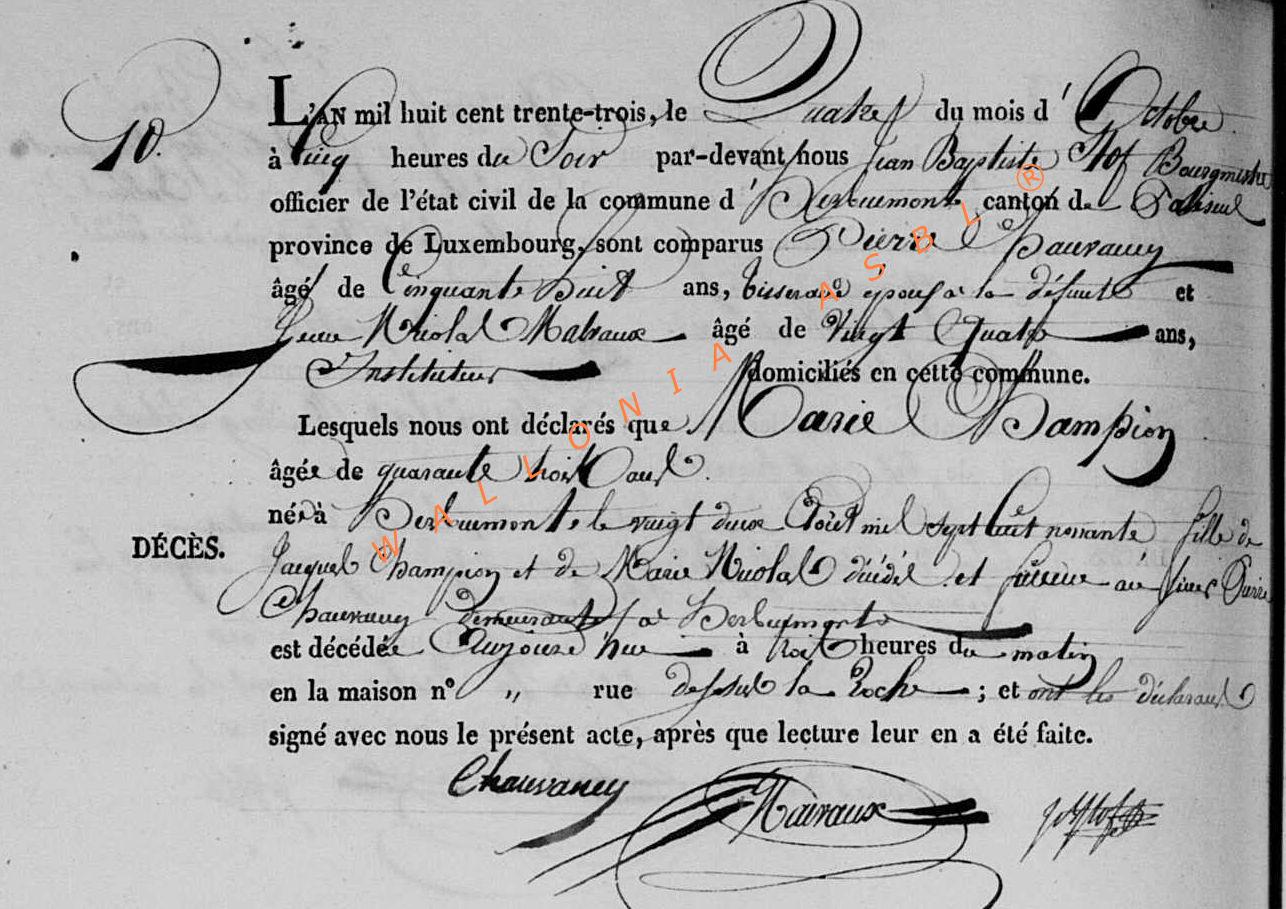 10.
L'AN mil huit cent trente-trois, le Quatre du mois d'Octobre
à Cinq heures du Soir par-devant nous Jean Baptiste Stof Bourgmestre
officier de l'état civil de la commune d'Herbeumont canton de Paliseul
province de Luxembourg, sont comparus Pierre Chauvancy
âgé de Cinquante huit ans, tisserand époux à la défunte et
Nicolas Mairaux âgé de Vingt Quatre ans,
Instituteur domiciliés en cette commune.
Lesquels nous ont déclarés que Marie Champion
âgée de quarante trois ans
née à Herbeumont le vingt deux Août mil sept cent nonante fille de
DÉCÈS.
Jacques Champion et de Marie Nicolas et Pierre
Chauvancy demeurante à Herbeumont
est décédée Aujourd'hui à trois heures du matin
en la maison n° " rue dessus la Roche ; et ont les déclarants
signé avec nous le présent acte, après que lecture leur en a été faite.
Chauvancy Mairaux
WALLONIA ASBL ®